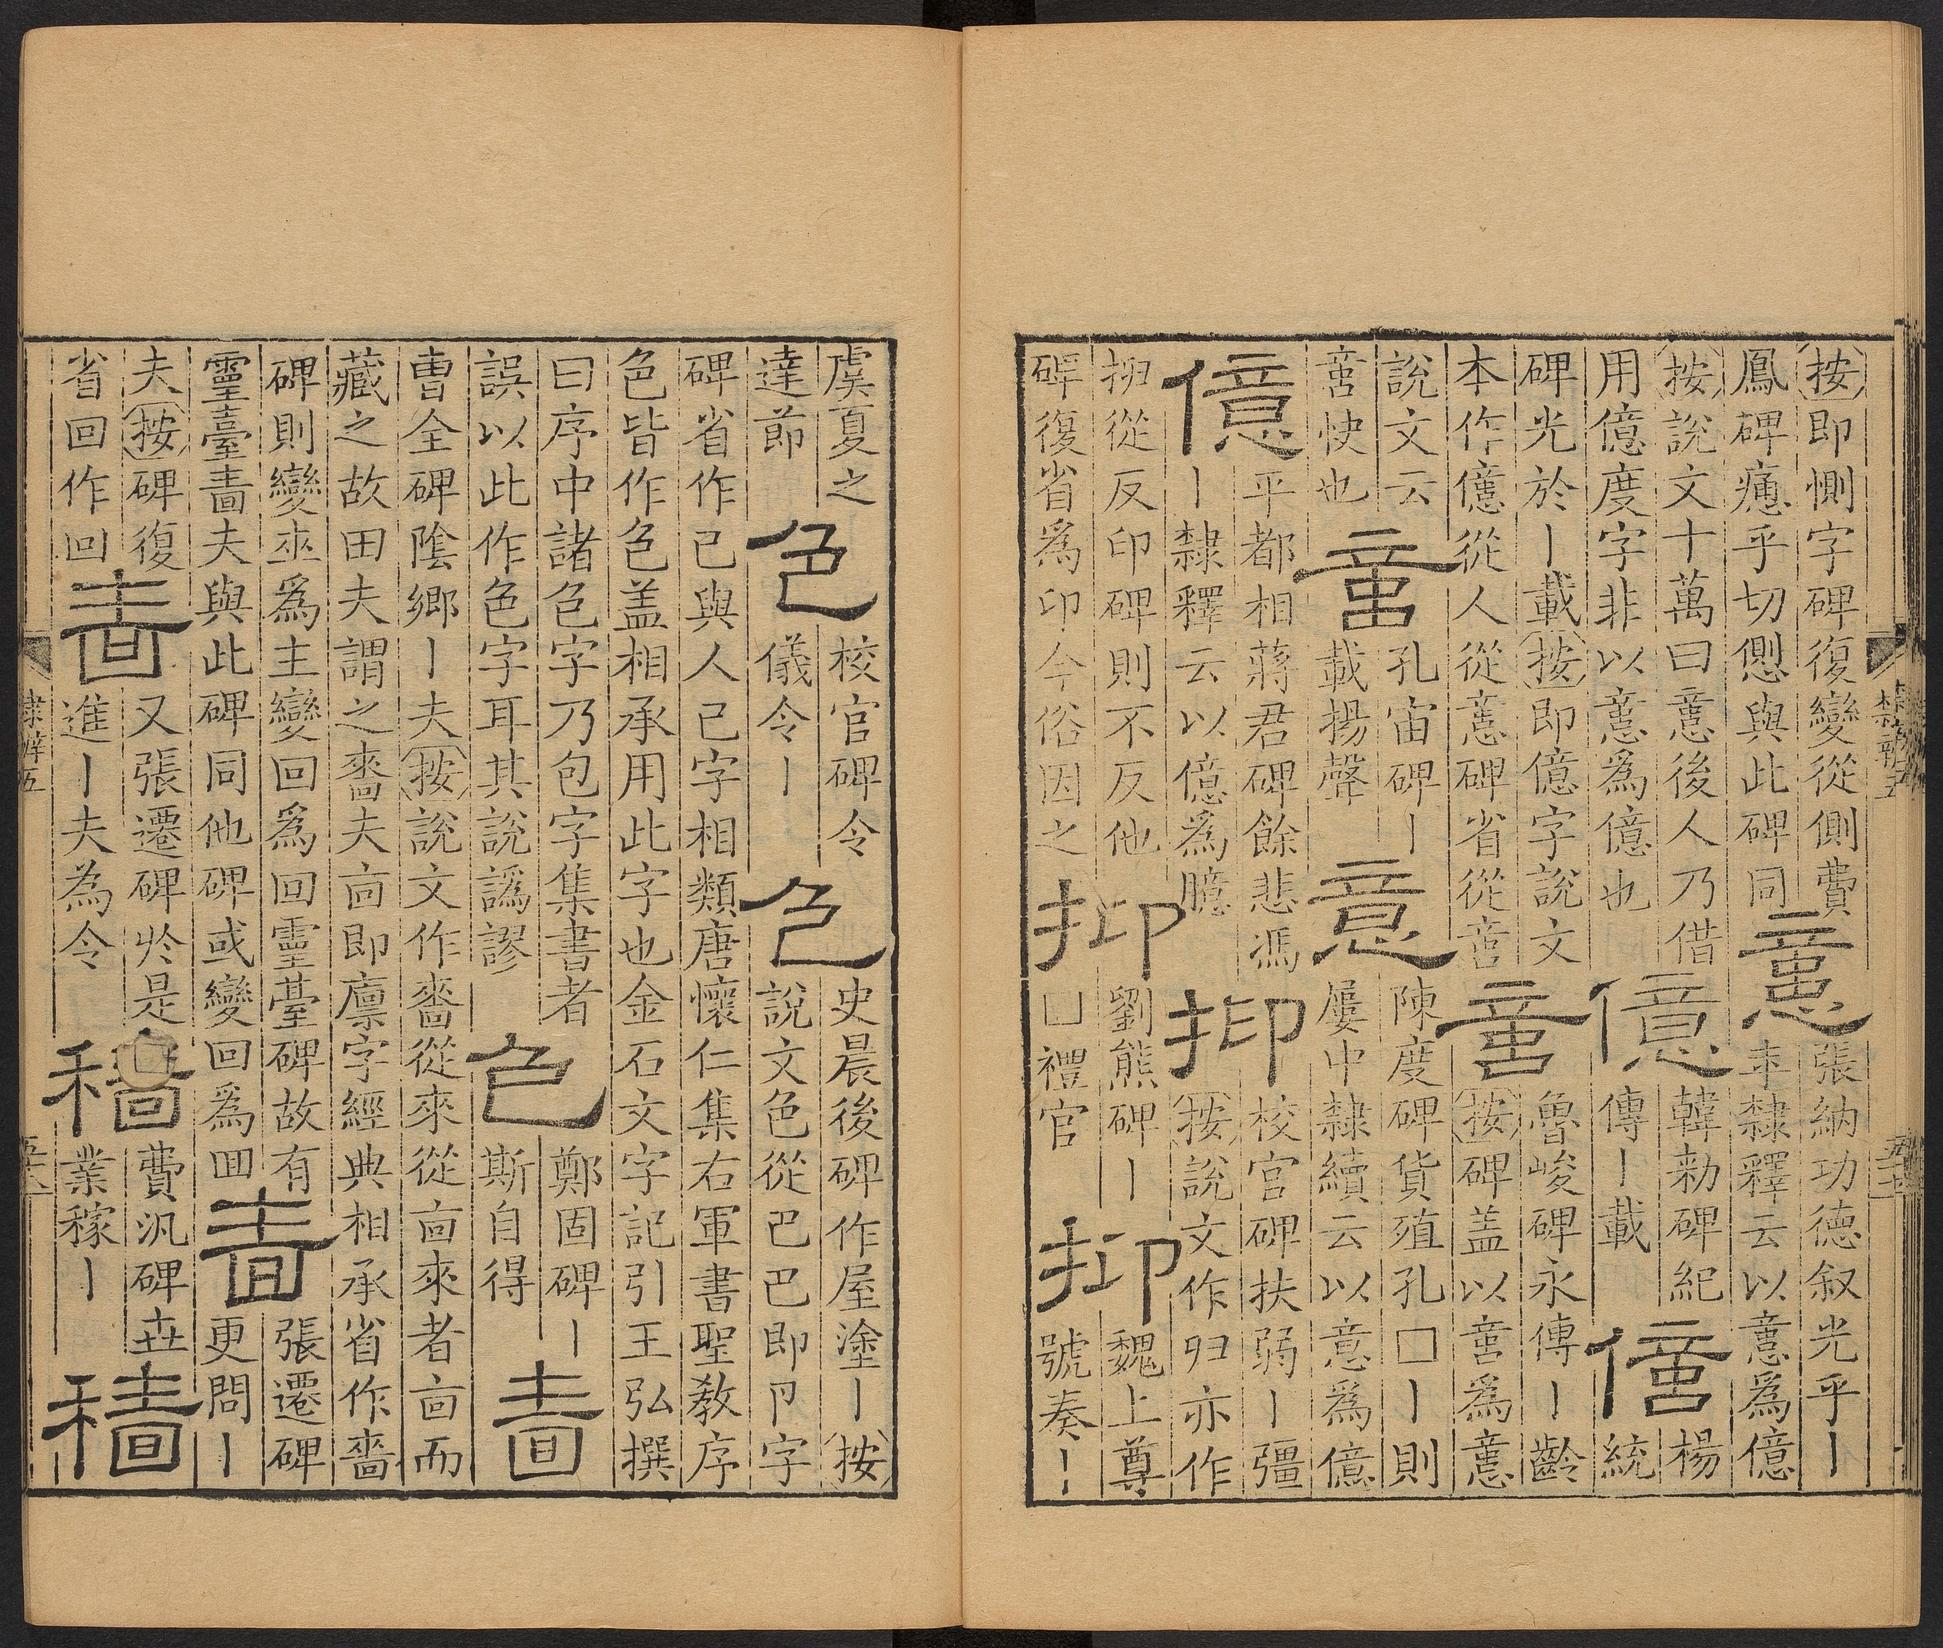 按即惻字碑復變從側費
鳳碑㥶乎切㥶與此碑同
意
張納功德叙光乎丨
隸釋云以意爲億
按說文十萬曰意後人乃借
用億度字非以意爲億也
億
韓勑碑紀
傳丨載
億
楊
統
碑光於丨載按即億字說文
本作億從人從意碑省從啻
啻
魯峻碑永傳丨齡
按碑盖以啻爲意
說文云
啻快也
啻
孔宙碑丨
載揚聲
意
陳度碑貨殖孔□丨則
屢中隸續云以意爲億
億
平都相蔣君碑餘悲馮
丨隸釋云以億爲臆
抑
校官碑扶弱丨彊
按說文作归亦作
抑從反印碑則不反他
碑復省爲印今俗因之
抑
劉熊碑丨
□禮官
抑
魏上尊
號奏丨
隸辨五
虞夏之
達節
色
校官碑令
儀令丨
色
史晨後碑作屋塗丨按
說文色從巴巴即卪字
碑省作己與人己字相類唐懷仁集右軍書聖教序
色皆作色盖相承用此字也金石文字記引王弘撰
曰序中諸色字乃包字集書者
誤以此作色字耳其說譌謬
色
鄭固碑丨
斯自得
嗇
曹全碑陰鄉丨夫按說文作嗇從來從㐭來者㐭而
藏之故田夫謂之嗇夫㐭即廩字經典相承省作嗇
碑則變巫爲主變回爲回靈臺碑故有
靈臺嗇夫與此碑同他碑或變回爲囬
嗇
張遷碑
更問丨
夫按碑復
省回作回
嗇
又張遷碑於是
進丨夫為令
穡
費汎碑
業稼丨
穡
隸辨五